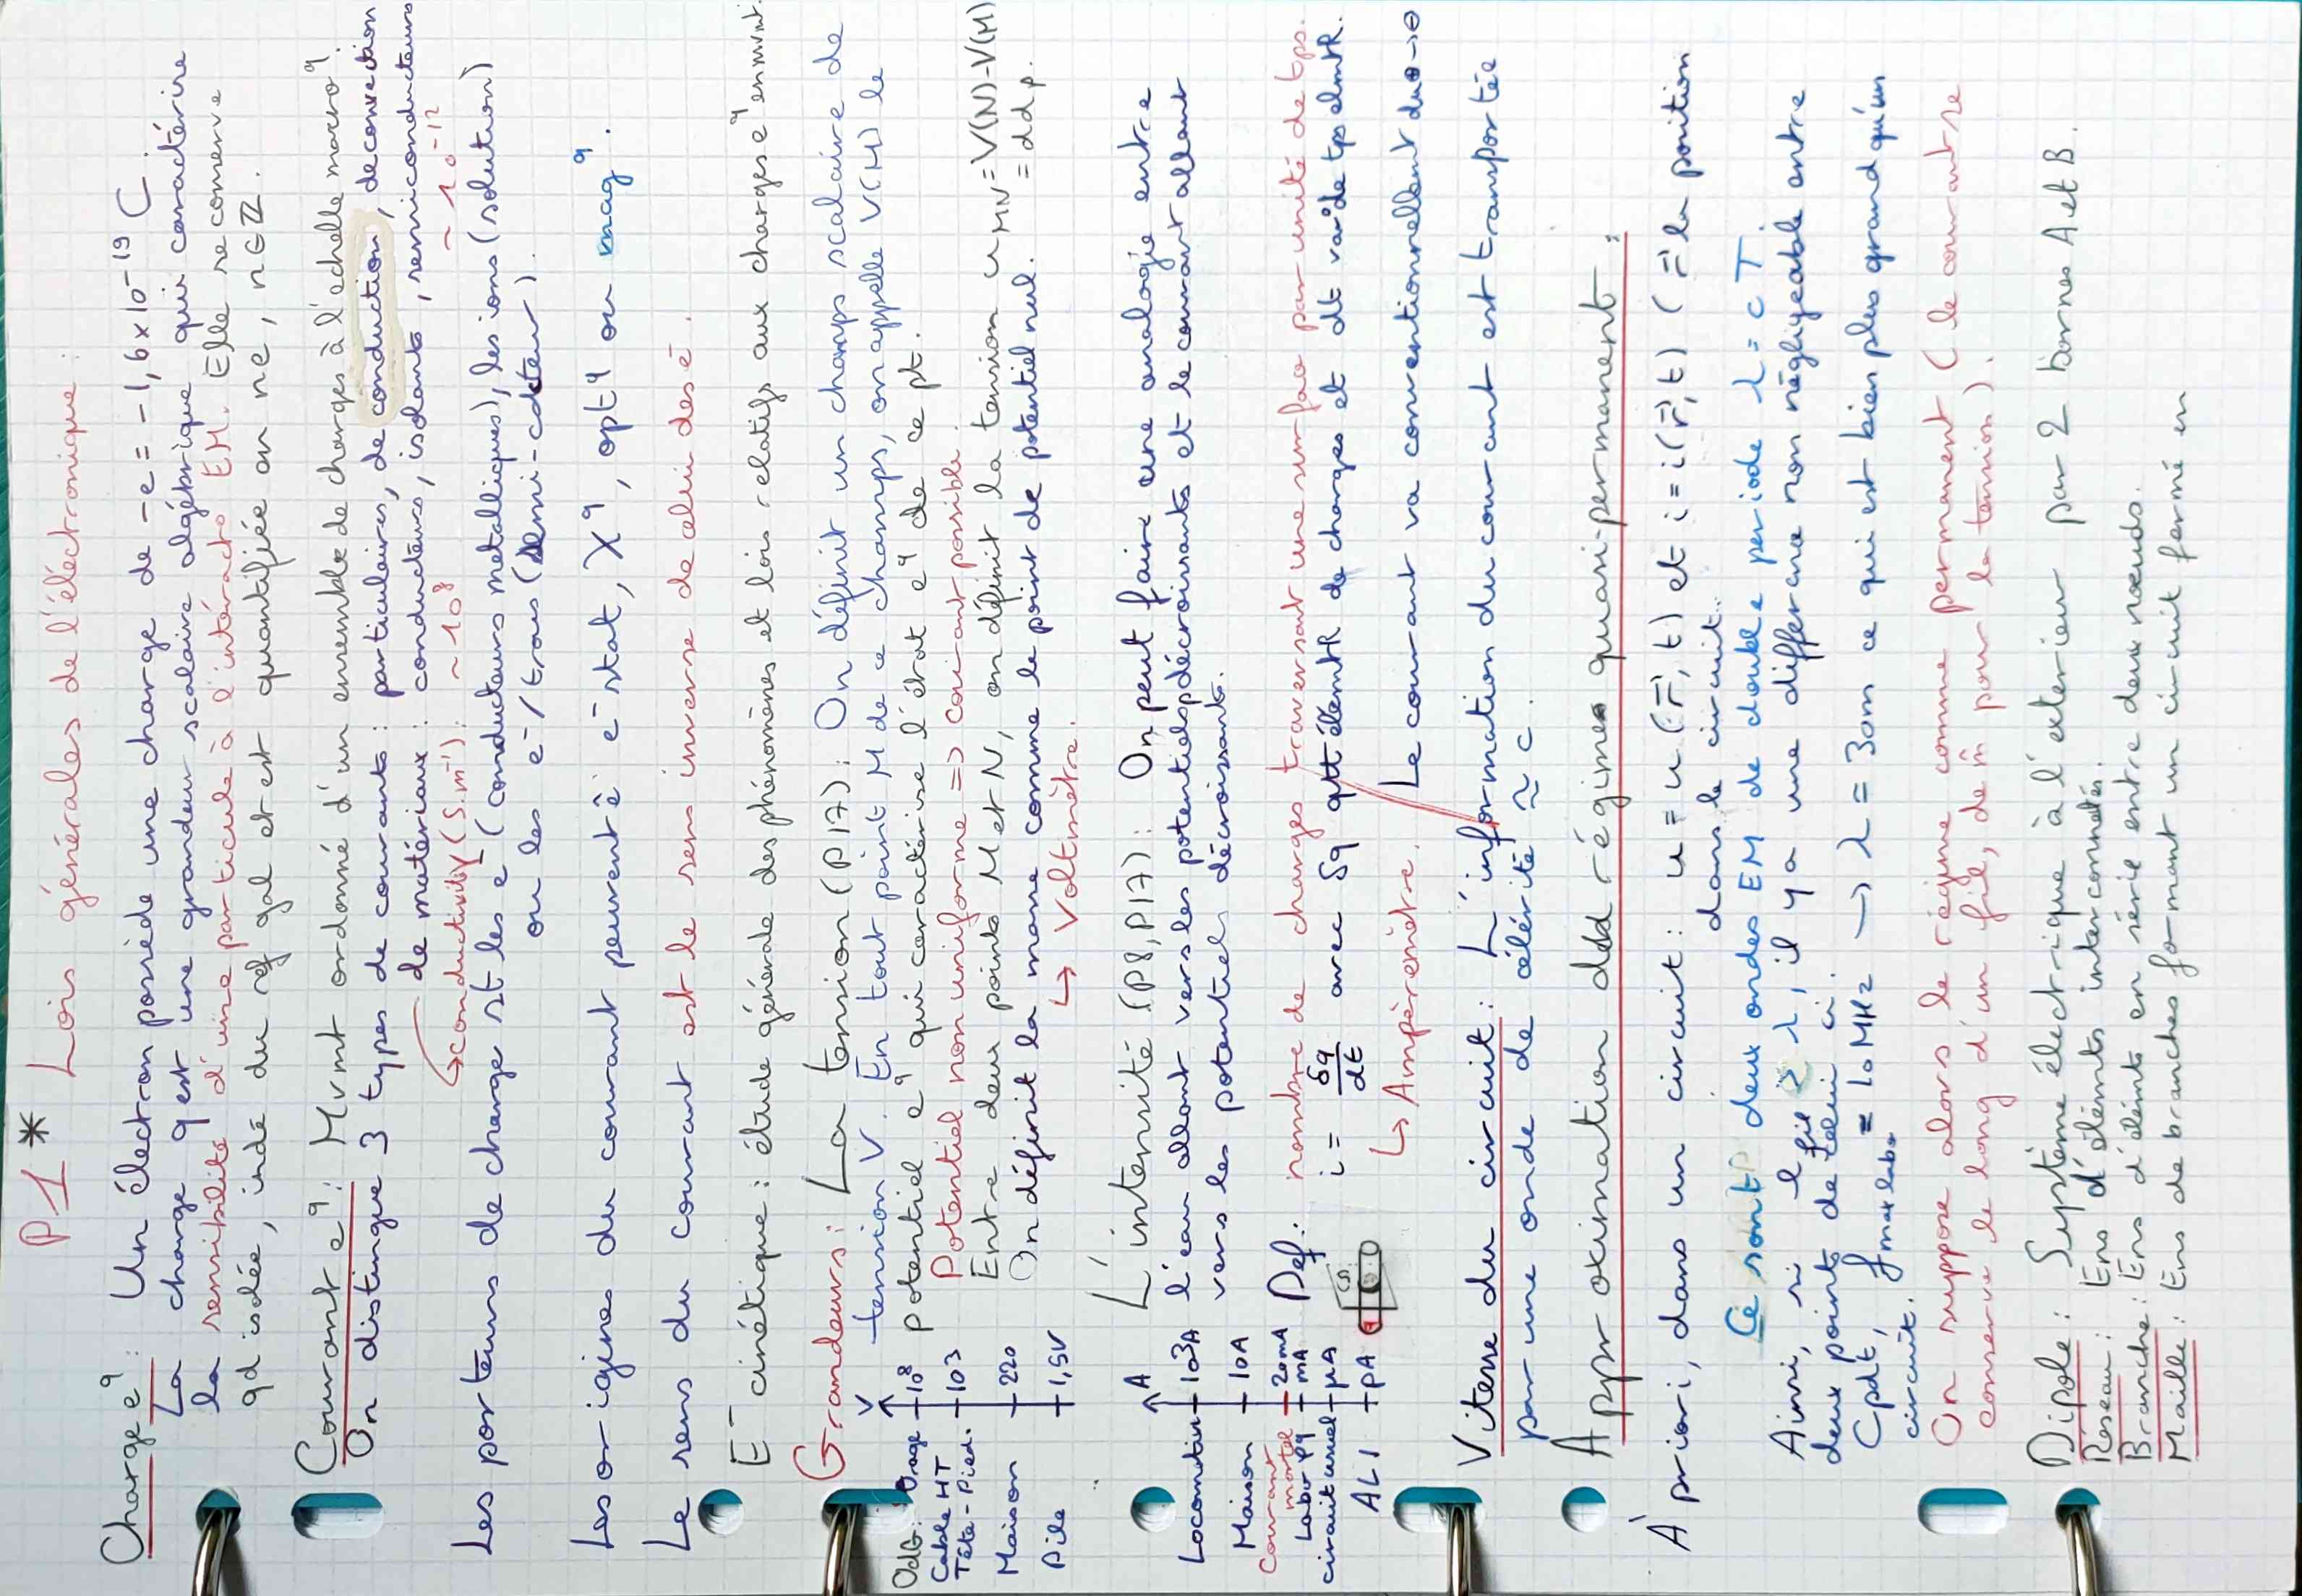 P1* Lois générales de l'éléctronique :
Charge e^q : Un électron possède une charge de -e = -1,6 x 10^-19 C.
La charge q est une grandeur scalaire algébrique qui caractérise
la sensibilité d'une particule à l'intéract° EM. Elle se conserve
qd isolée, indé du ref gal et est quantifiée on ne, n∈ℤ.
Courant e^q : Mvmt ordonné d'un ensemble de charges à l'échelle macro^q.
On distingue 3 types de courants : particulaires, de conduction, de convection
de matériaux : conducteurs, isolants, semiconducteurs
↳ conductivity (S.m^-1) : ~10^8 ~10^-12
Les porteurs de charge st les e^- (conducteurs metalliques), les ions (solution)
ou les e^-/trous (semi-cdcteur).
Les origines du courant peuvent ê e^-stat, X^q, opt^q ou mag^q.
Le sens du courant est le sens inverse de celui des e^-.
E^-cinétique : étude générale des phénomènes et lois relatifs aux charges e^q en mvmt.
Grandeurs : La tension (P17) : On définit un champs scalaire de
tension V. En tout point M de ce champs, on appelle V(M) le
potentiel e^q qui caractérise l'état e^q de ce pt.
Potentiel non uniforme => courant possible.
Entre deux points M et N, on définit la tension u_MN = V(N)-V(M)
= ddp.
On définit la masse comme le point de potentiel nul.
↳ Voltmètre.
V
OdG : Orage 10^8
Cable HT 10^3
Tête-Pied.
Maison 220
Pile 1,5V
L'intensité (P8, P17) : On peut faire une analogie entre
l'eau allant vers les potentiels p décroissants et le courant allant
vers les potentiels décroissants.
A
Locomotive 10^3A
Maison 10A
Courant mortel 20mA
Labo P^q mA
circuit usuel μA
ALI pA
Def : nombre de charges traversant une surface par unité de tps.
i = δq/dt avec δq qtt élémtR de charges et dt var° de tps élmtR.
↳ Ampèremètre.
Le courant va conventionnellement du ⊕ → ⊖
Vitesse du circuit : L'information du courant est transportée
par une onde de célérité ≈ c.
Approximation des régimes quasi-permanents :
À priori, dans un circuit : u = u(r⃗,t) et i = i(r⃗,t) (r⃗ la position
dans le circuit.
Ce sont deux ondes EM de double periode λ = cT.
Ainsi, si l fil ≥ λ, il y a une différence non négligeable entre
deux points de celui ci.
Cpdt, f max labo = 10 MHz → λ = 30m ce qui est bien plus grand qu'un
circuit.
On suppose alors le régime comme permanent (le courant se
conserve le long d'un fil, de m̂ pour la tension).
Dipole : Système électrique à l'exterieur par 2 bornes A et B.
Réseau : Ens d'élémts interconnectés.
Branche : Ens d'élémts en série entre deux noeuds.
Maille : Ens de branches formant un circuit fermé en